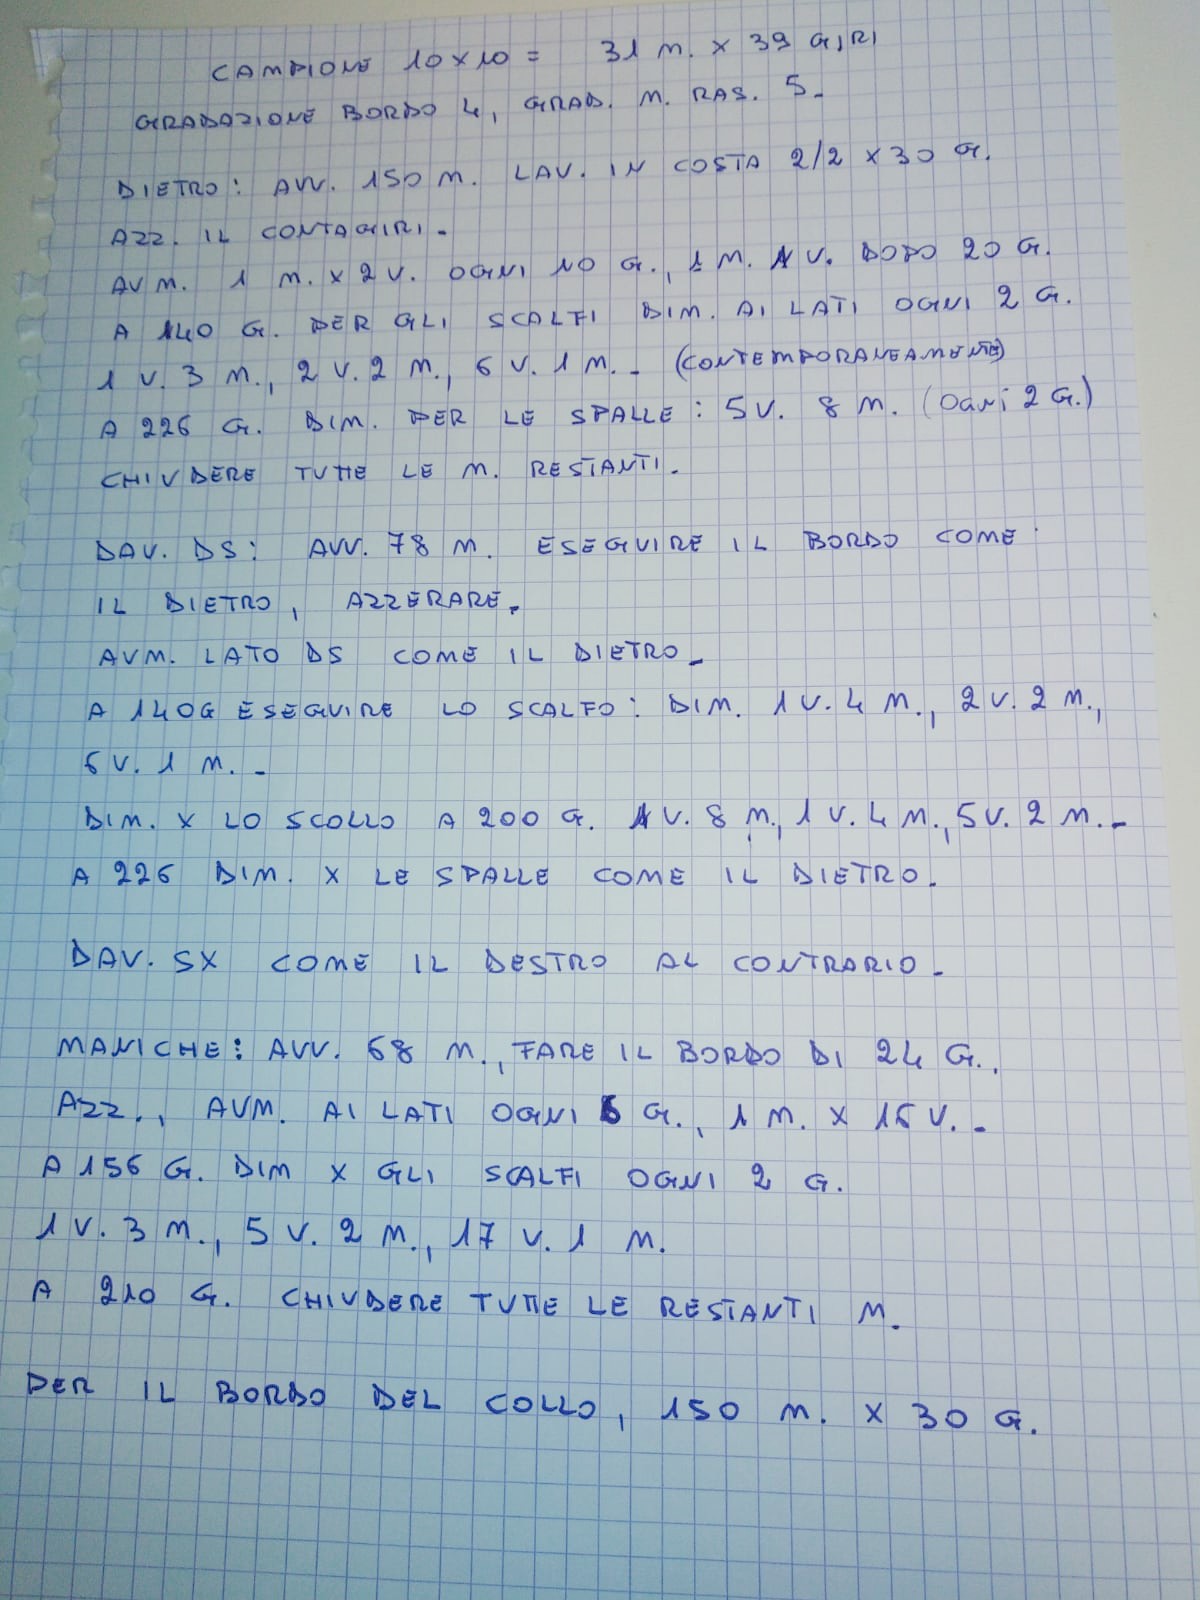 CAMPIONE 10x10 = 31 M. x 39 GIRI
GRADAZIONE BORDO 4, GRAD. M. RAS. 5.
DIETRO: AVV. 150 M. LAV. IN COSTA 2/2 x 30 G.
AZZ. IL CONTAGIRI.
AVM. 1 M. x 2 V. OGNI 10 G., 1 M. 1 V. DOPO 20 G.
A 140 G. PER GLI SCALFI DIM. AI LATI OGNI 2 G.
1 V. 3 M., 2 V. 2 M., 6 V. 1 M. - (CONTEMPORANEAMENTE)
A 226 G. DIM. PER LE SPALLE: 5 V. 8 M. (OGNI 2 G.)
CHIUDERE TUTTE LE M. RESTANTI.
DAV. DS: AVV. 78 M. ESEGUIRE IL BORDO COME
IL DIETRO, AZZERARE.
AUM. LATO DS COME IL DIETRO -
A 140G ESEGUIRE LO SCALFO: DIM. 1 V. 4 M., 2 V. 2 M.,
6 V. 1 M. -
DIM. x LO SCOLLO A 200 G. 1 V. 8 M., 1 V. 4 M., 5 V. 2 M. -
A 226 DIM. x LE SPALLE COME IL DIETRO.
DAV. SX COME IL DESTRO AL CONTRARIO -
MANICHE: AVV. 68 M., FARE IL BORDO DI 24 G.,
AZZ., AUM. AI LATI OGNI 6 G., 1 M. x 15 V. -
A 156 G. DIM x GLI SCALFI OGNI 2 G.
1 V. 3 M., 5 V. 2 M., 17 V. 1 M.
A 210 G. CHIUDERE TUTTE LE RESTANTI M.
PER IL BORDO DEL COLLO, 150 M. x 30 G.